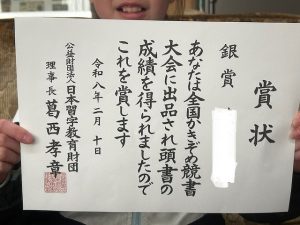 賞状
銀賞
あなたは全国かきぞめ競書
大会に出品され頭書の
成績を得られましたので
これを賞します
令和八年二月十日
公益財団法人日本習字教育財団
理事長 葛西孝章